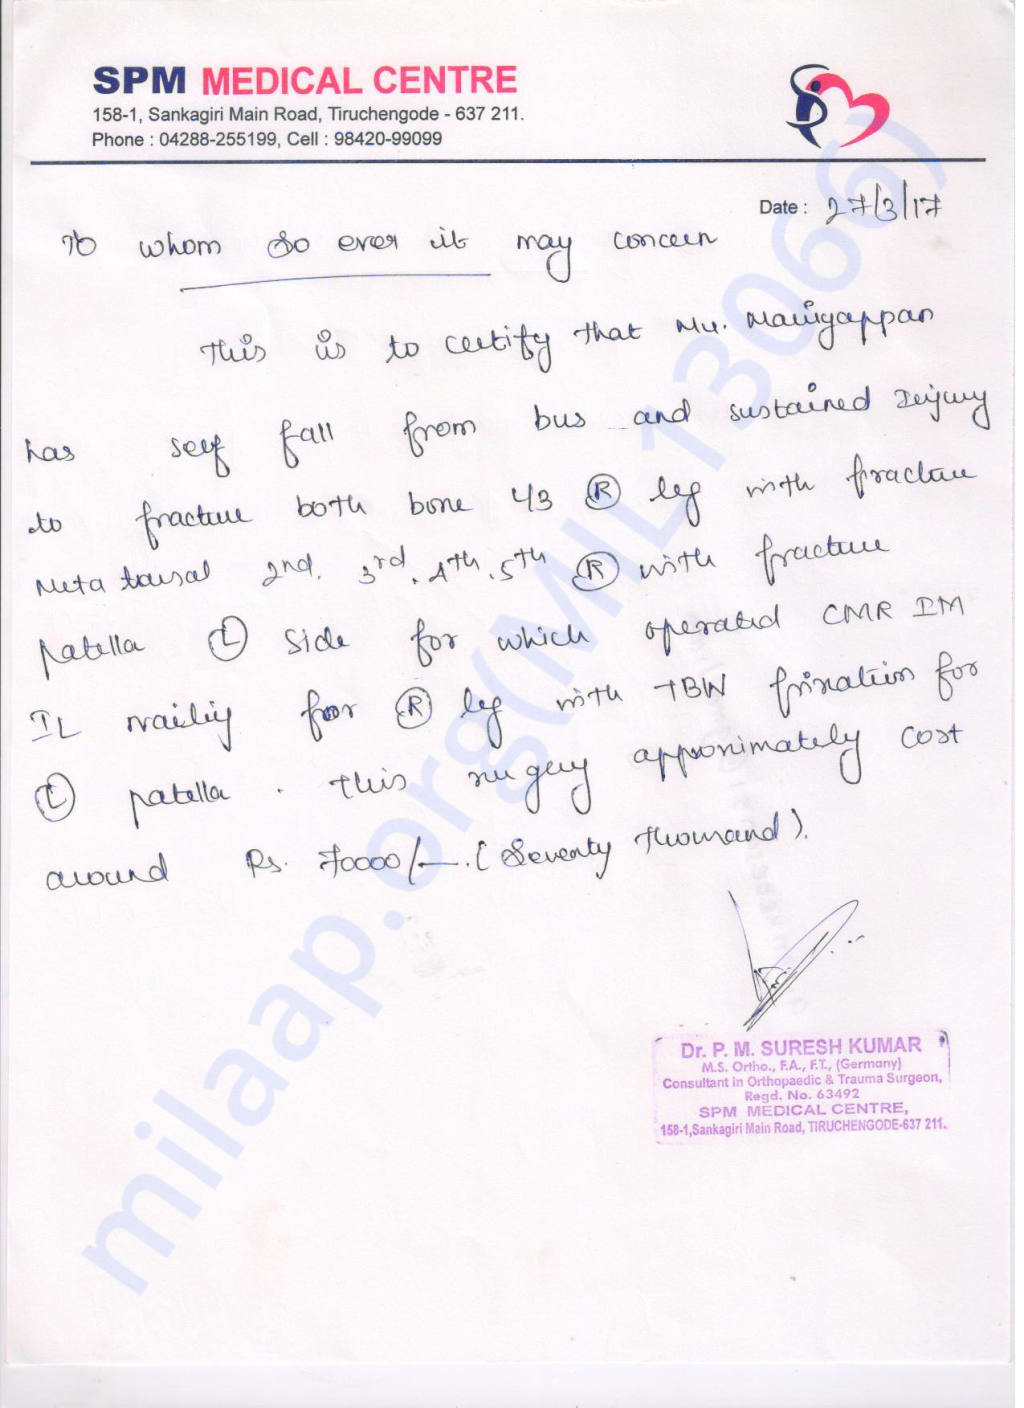 SPM MEDICAL CENTRE
158-1, Sankagiri Main Road, Tiruchengode - 637 211.
Phone : 04288-255199, Cell : 98420-99099
Date : 27/3/17
To whom so ever it may concern
This is to certify that Mr. 
has self fall from bus and sustained Injury
to fracture both bone 1/3 Ⓡ leg with fracture
Meta tarsal 2nd, 3rd, 4th, 5th Ⓡ with fracture
patella Ⓛ side for which operated CMR IM
IL nailing for Ⓡ leg with TBW fixation for
Ⓛ patella. This surgery approximately cost
around Rs. 70000/-. (Seventy thousand).
Dr. P. M. SURESH KUMAR
M.S. Ortho., F.A., F.T., (Germany)
Consultant in Orthopaedic & Trauma Surgeon,
Regd. No. 63492
SPM MEDICAL CENTRE,
158-1, Sankagiri Main Road, TIRUCHENGODE-637 211.
milaap.org(ML13066)